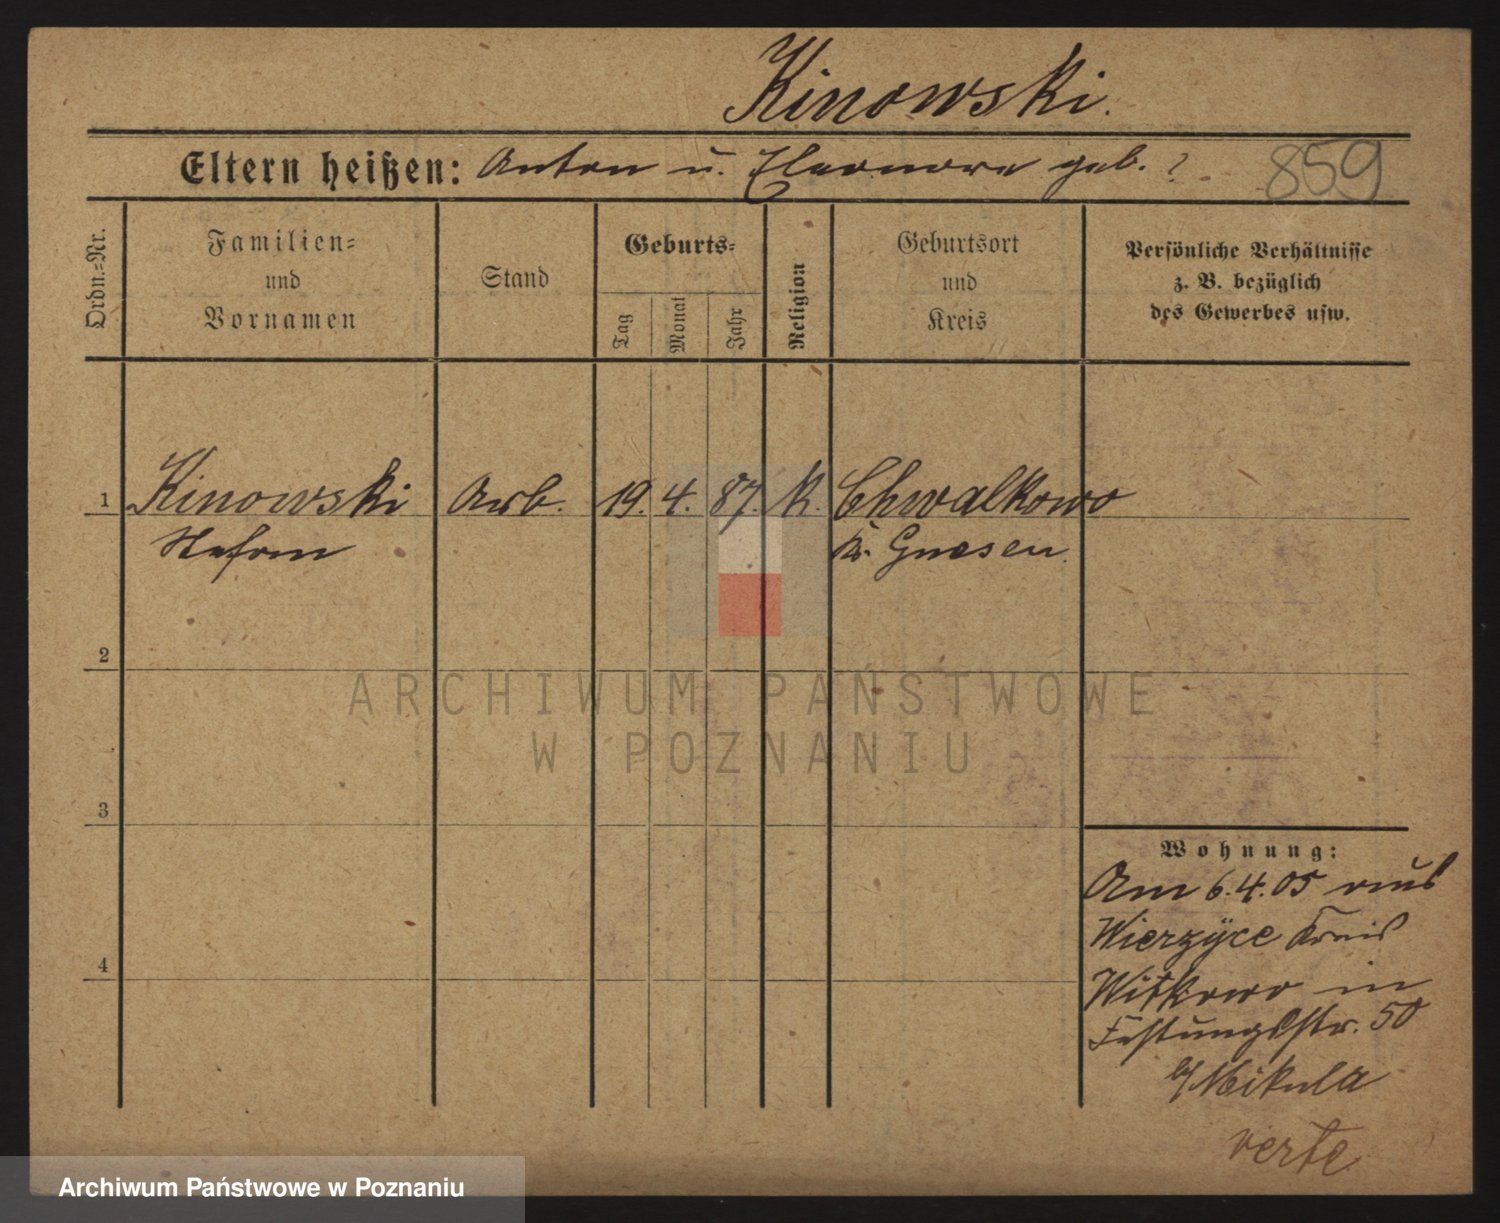 Kinowski.
Eltern heißen: Anton u. Eleonore geb. ?
859
Ordn.=Nr.
Familien=
und
Vornamen
Stand
Geburts=
Tag
Monat
Jahr
Religion
Geburtsort
und
Kreis
Persönliche Verhältnisse
z. B. bezüglich
des Gewerbes usw.
1 Kinowski Arb. 19. 4. 87. K. Chwalkowo
Stefan Kr. Gnesen.
2
ARCHIWUM PAŃSTWOWE
W POZNANIU
3
Wohnung:
Am 6.4.05 aus
Wierzyce Kreis
4
Witkowo in
Festungsstr. 50
b/ Mikula
verte
Archiwum Państwowe w Poznaniu